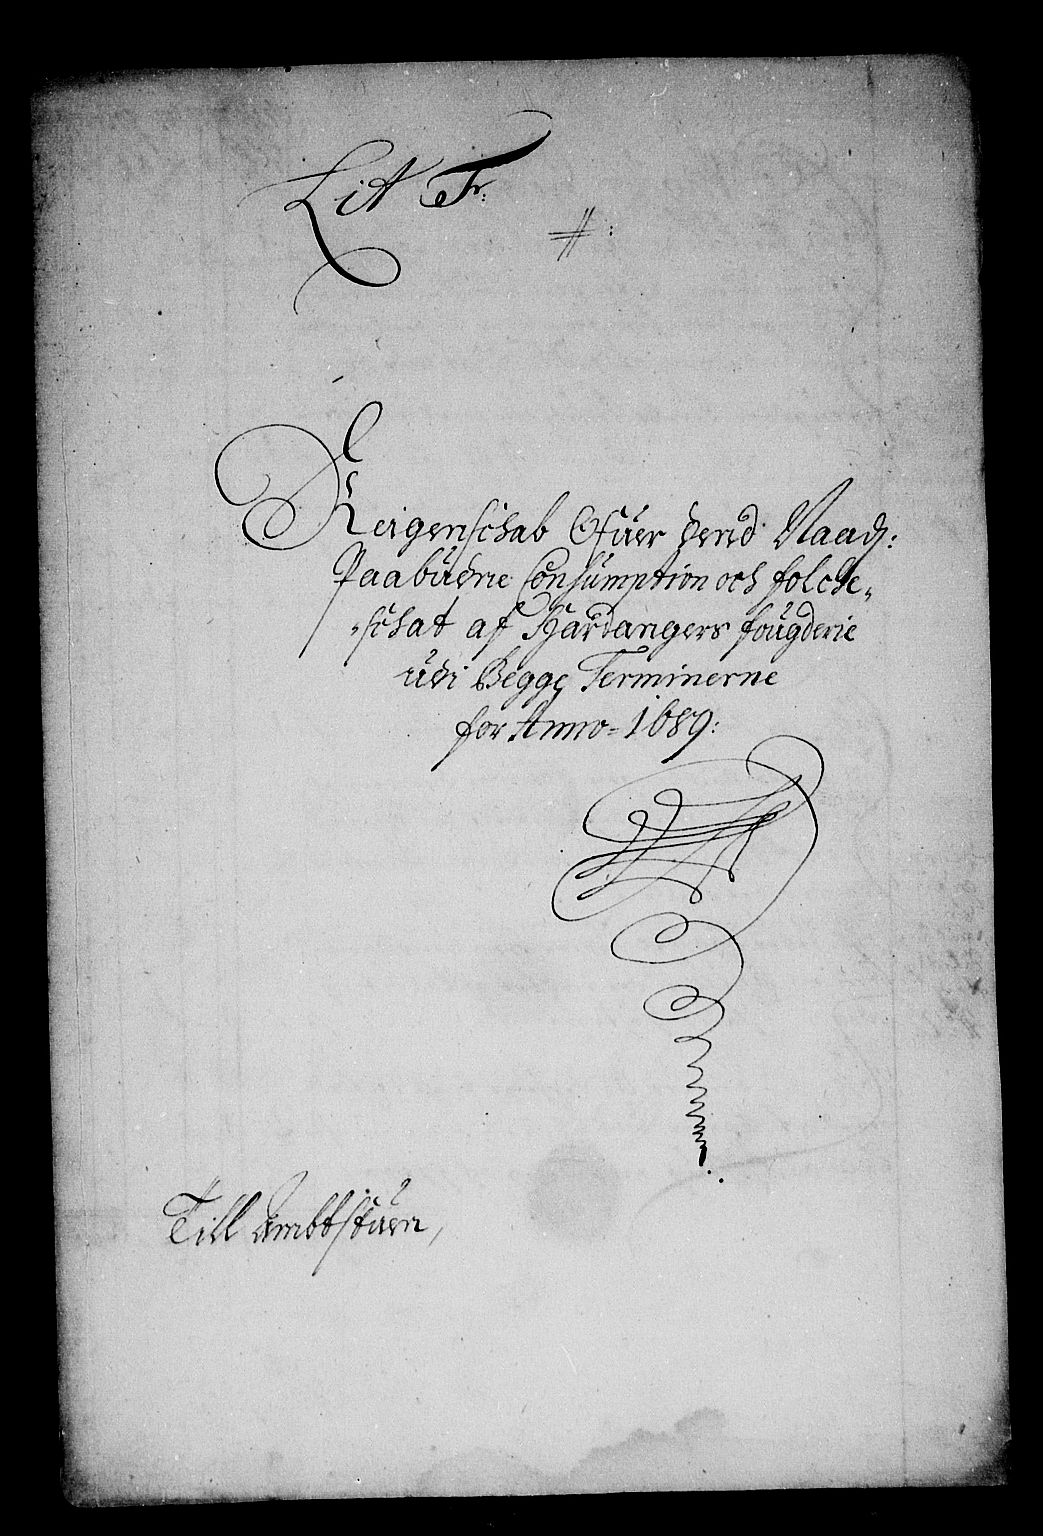 Lit Fr:
#:
Reigenschab Ofúer dend Naad:
Paabúdne Consúmption och folche„
„schat af Hardangers foúgderie
údi Begge Terminerne
for Anno= 1689:
Till Ambtstúen,